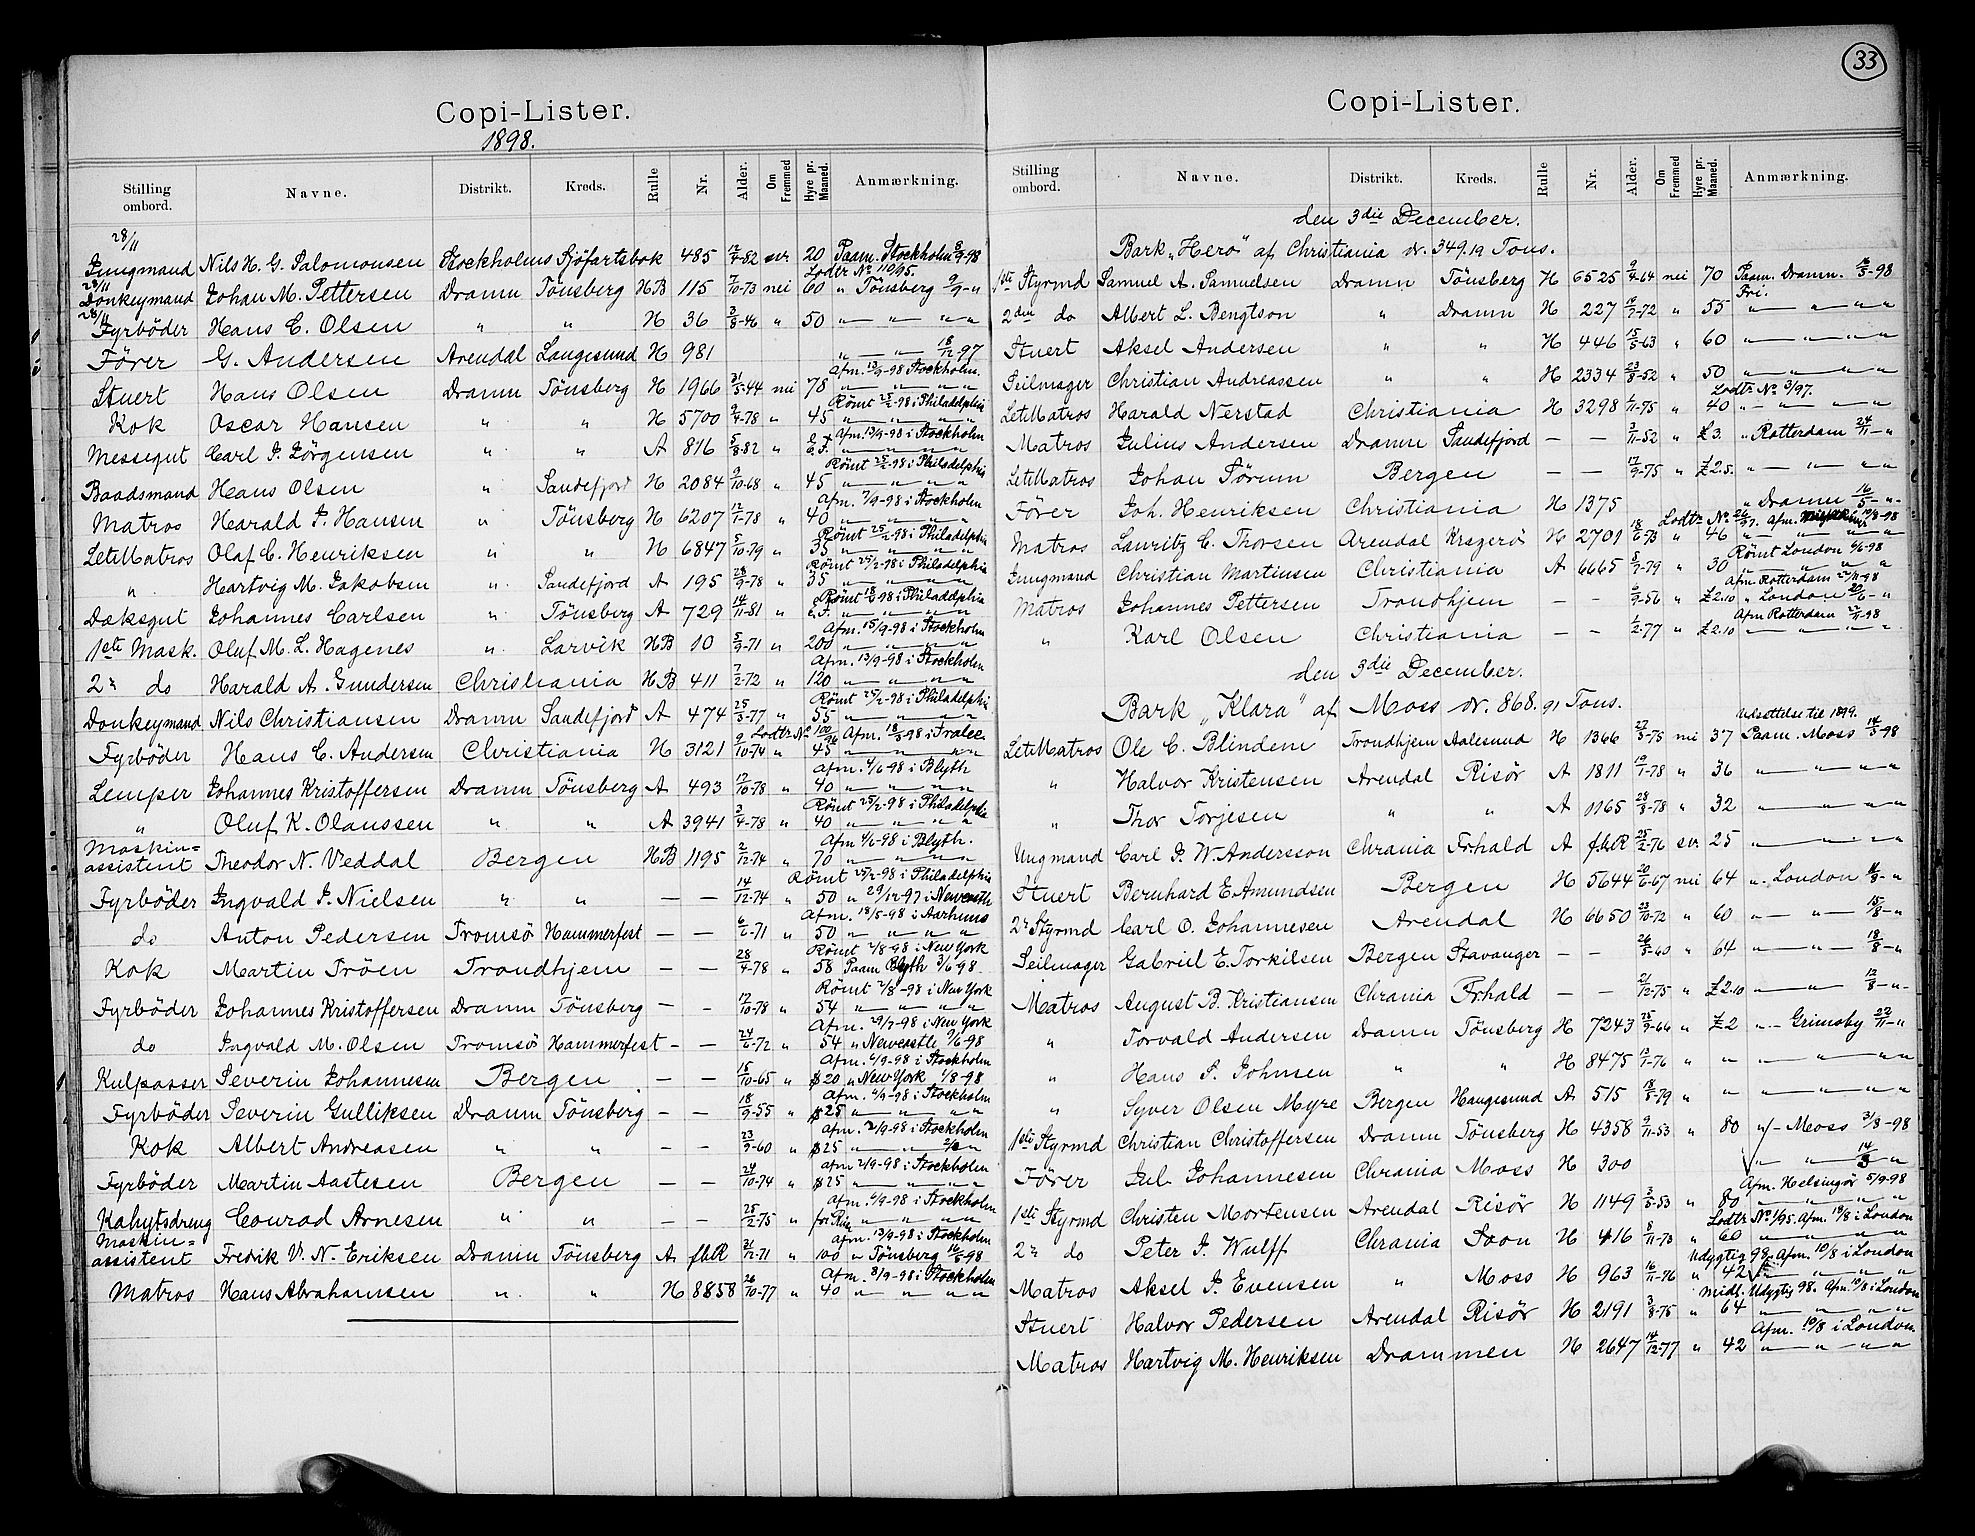 Copi-Lister.
1898.
Stilling ombord. Navne. Distrikt. Kreds. Rulle Nr. Alder. Om Fremmed Hyre pr. Maaned. Anmærkning.
28/11
Jungmand Nils H. G. Salomonsen Stockholms Sjöfartsbok 485 12/4-82 svr 20 Paam. Stockholm 8/9-98
28/11 Lodtr No 110/95.
Donkeymand Johan M. Pettersen Dramn Tönsberg HB 115 7/10-73 nei 60 " Tönsberg 9/9-"
28/11
Fyrböder Hans C. Olsen " " H 36 3/8-46 " 50 " — " — " "
Förer G. Andersen Arendal Langesund H 981 " — " — 18/12 97
Afm. 13/9-98 Stockholm.
Stuert Hans Olsen Dramn Tönsberg H 1966 31/5-44 nei 78 " — " — " "
Römt 25/2-98 i Philadelphia
Kok Oscar Hansen " " H 5700 9/4-78 " 45 " " " "
Afm. 13/9-98 i Stockholm
Messegut Carl J. Jörgensen " " A 816 5/8-82 " " " " "
Römt 25/2-98 i Philadelphia
Baadsmand Hans Olsen " Sandefjord H 2084 9/10-68 " 45 " " " "
Afm. 7/9-98 i Stockholm
Matros Harald J. Hansen " Tönsberg H 6207 12/1-78 " 40 " " " "
Römt 25/2-98 i Philadelphia
LetMatros Olaf C. Henriksen " " H 6847 5/10-79 " 35 " " " "
Römt 25/2-98 i Philadelphia
" Hartvig M. Jakobsen " Sandefjord A 195 28/9-78 " 35 " " " "
Römt i Philadelphia
Dæksgut Johannes Carlsen " Tönsberg A 729 14/11-81 " " " " "
Afm. 15/9-98 i Stockholm
1ste Mask. Oluf M. L. Hagenes " Larvik HB 10 5/9-71 " 200 " " " "
Afm. 13/9-98 i Stockholm
2n do Harald A. Gundersen Christiania HB 411 7/2-72 " 120 " " " "
Römt 25/2-98 i Philadelphi.
Donkeymand Nils Christiansen Dramn Sandefjord A 474 25/3-77 " 55 " " " "
Lodtr No 100/96 Afm. 18/3-98 i Tralee.
Fyrböder Hans C. Andersen Christiania H 3121 9/10-74 " 45 " " " "
Afm. 4/6-98 i Blyth
Lemper Johannes Kristoffersen Dramn Tönsberg A 493 12/10-78 " 40 " " " "
Römt 25/2-98 i Philadelphia
" Oluf K. Olaussen " " A 3941 3/4-78 " 40 " " " "
Afm 4/6-98 i Blyth.
Maskin=assistent Theodor N. Veddal Bergen HB 1195 2/12-74 " 70 " " " "
Römt 25/2-98 i Philadelphia
Fyrböder Ingvald J. Nielsen " " — — 14/12-74 " 50 " 29/12-97 i Newcastle
Afm. 18/5-98 i Aarhuus
do Anton Pedersen Tromsö Hammerfest — — 6/6-71 " 50 " " " "
Römt 2/8-98 i New York
Kok Martin Tröen Trondhjem — — 28/4-78 " 58 Paam Blyth 3/6 98.
Römt 2/8-98 i New York
Fyrböder Johannes Kristoffersen Dramn Tönsberg — - 12/10-78 " 54 " " " "
Afm. 29/7-98 i New York
do Ingvald M. Olsen Tromsö Hammerfest - — 24/6-72 " 54 " Newcastle 7/6-98
Afm. 6/9-98 i Stockholm
Kulpasser Severin Johannesen Bergen — — 15/10-65 " $20 " New York 1/8-98
Afm. 6/9-98 i Stockholm
Fyrböder Severin Gulliksen Dramn Tönsberg — — 18/9-55 " $25 " " " "
Afm. 2/9-98 i Stockholm
Kok Albert Andreasen " " — — 23/9-60 " $25 " " 2/8 "
Afm 2/9-98 i Stockholm
Fyrböder Martin Aastesen Bergen — — 24/10-74 " $25 " " " "
Afm. 6/9-98 i Stockholm
Kahytsdreng Conrad Arnesen " " — — 25/2-75 " " " " "
Afm. 13/9-98 i Stockholm
Maskin=assistent Fredrik V. N. Eriksen Dramn Tönsberg A fbR 31/12-71 " 100 " Tönsberg 16/5-98
Afm. 8/9-98 i Stockholm
Matros Hans Abrahamsen " " H 8858 26/10-77 " 40 " " " "
33
Copi-Lister.
Stilling ombord. Navne. Distrikt. Kreds. Rulle Nr. Alder. Om Fremmed Hyre pr. Maaned. Anmærkning.
den 3die December.
Bark „Hero" af Christiania dr. 349.19 Tons.
1ste Styrmd Samuel A. Samuelsen Dramn Tönsberg H 6525 9/4-64 nei 70 Paam. Dramn. 16/5-98
Fri.
2den do Albert L. Bengtson " Dramn H 227 19/7-72 " 55 " — " — " "
Stuert Aksel Andersen " " H 446 15/5-63 " 60 " — " — " "
Seilmager Christian Andreassen " " H 2334 23/8-52 " 50 " — " — " "
Lodtr No 3/97.
LetMatros Harald Nerstad Christiania H 3298 1/11-75 " 40 " — " — " "
Matros Julius Andersen Dramn Sandefjord — — 3/11-52 " £3. " Rotterdam 24/11-"
LetMatros Johan Förum Bergen — — 17/9-75 " £2.5. " — " — " "
Förer Joh. Henriksen Christiania H 1375 " Dramn 16/5-"-
Lodtr No 26/97. Afm. 19/8-98
Matros Lauritz C. Thorsen Arendal Kragerö H 2701 18/6-73 " 46 " — " " "
Römt London 6/6-98
Jungmand Christian Martinsen Christiania A 6665 5/7-79 " 30 " " " "
Afm. Rotterdam 22/11-98
Matros Johannes Pettersen Trondhjem — — 6/9-56 " £2.10 " London 20/6-"
Afm Rotterdam 22/11-98
" Karl Olsen Christiania — — 1/2-77 " £2.10 " " " "
den 3die December.
Bark „Klara" af Moss dr. 868.91 Tons.
Udsettelse til 1899.
LetMatros Ole C. Blindem Trondhjem Aalesund H 1366 27/3-75 nei 37 Paam. Moss 14/3-98
" Halvor Kristensen Arendal Risör A 1811 19/1-78 " 36 " — " — " "
" Thor Torjesen " " A 1165 28/3-78 " 32 " — " — " "
Ungmand Carl J. W. Andersson Chrania Frhald A fbR 25/2-76 svr 25 " — " — "
Stuert Bernhard E. Amundsen Bergen H 5644 20/6-67 nei 64 " London 11/8-"
2n Styrmd Carl O. Johannesen Arendal H 6650 23/10-72 " 60 " — " — 15/8-"
Seilmager Gabriel E. Torkilsen Bergen Stavanger — — 26/5-60 " 64 " — " — 18/8-"
Matros August B. Kristiansen Chrania Frhald — — 21/12-75 " £2.10 " — " 12/8-"-
" Torvald Andersen Dramn Tönsberg H 7243 25/9-66 " £2 " - Grimsby 22/11-"
" Hans S. Johnsen " " H 8475 12/7-76 " " " — " — " "
" Syver Olsen Myre Bergen Haugesund A 515 18/5-79 " " " — " — " "
1ste Styrmd Christian Christoffersen Dramn Tönsberg H 4358 9/11-53 " 80 "/- Moss 3/3-98
Förer Jul. Johannesen Chrania Moss H 300 " " 14/3 "
Afm. Helsingör 5/9-98
1ste Styrmd Christen Mortensen Arendal Risör H 1149 3/3-53 " 80 " " " "
Lodtr No 1/95. Afm. 19/8 i London
2n do Peter J. Wulff Chrania Soon H 416 8/11-73 " 60 " — " "
Udygtig 98. Afm. 10/8 i London
Matros Aksel J. Evensen " Moss H 963 16/11-76 " 42 " — " " "
Midl. Udygtig 98. Afm. 10/8 i London
Stuert Halvor Pedersen Arendal Risör H 2191 3/8-75 " 64 " " " "
Afm. 10/8 i London.
Matros Hartvig M. Henriksen Drammen H 2647 14/12-77 " 42 " — " — " "